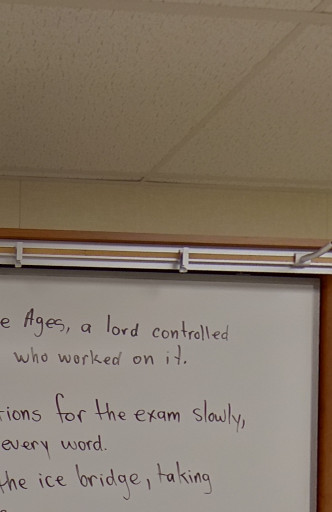 e Ages, a lord controlled
who worked on it.
tions for the exam slowly,
every word.
the ice bridge, taking